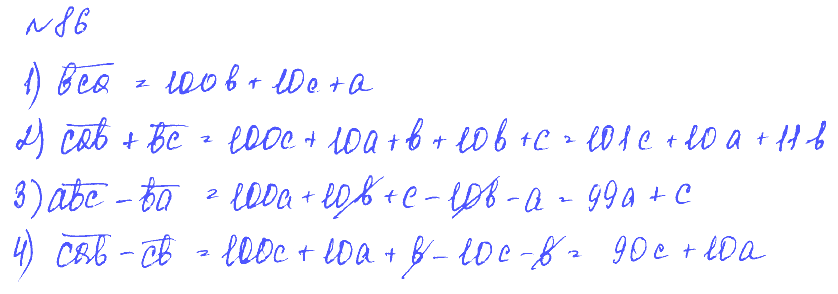 №86
1) \overline{bca} = 100b + 10c + a
2) \overline{cab} + \overline{bc} = 100c + 10a + b + 10b + c = 101c + 10a + 11b
3) \overline{abc} - \overline{ba} = 100a + 10b + c - 10b - a = 99a + c
4) \overline{cab} - \overline{cb} = 100c + 10a + b - 10c - b = 90c + 10a